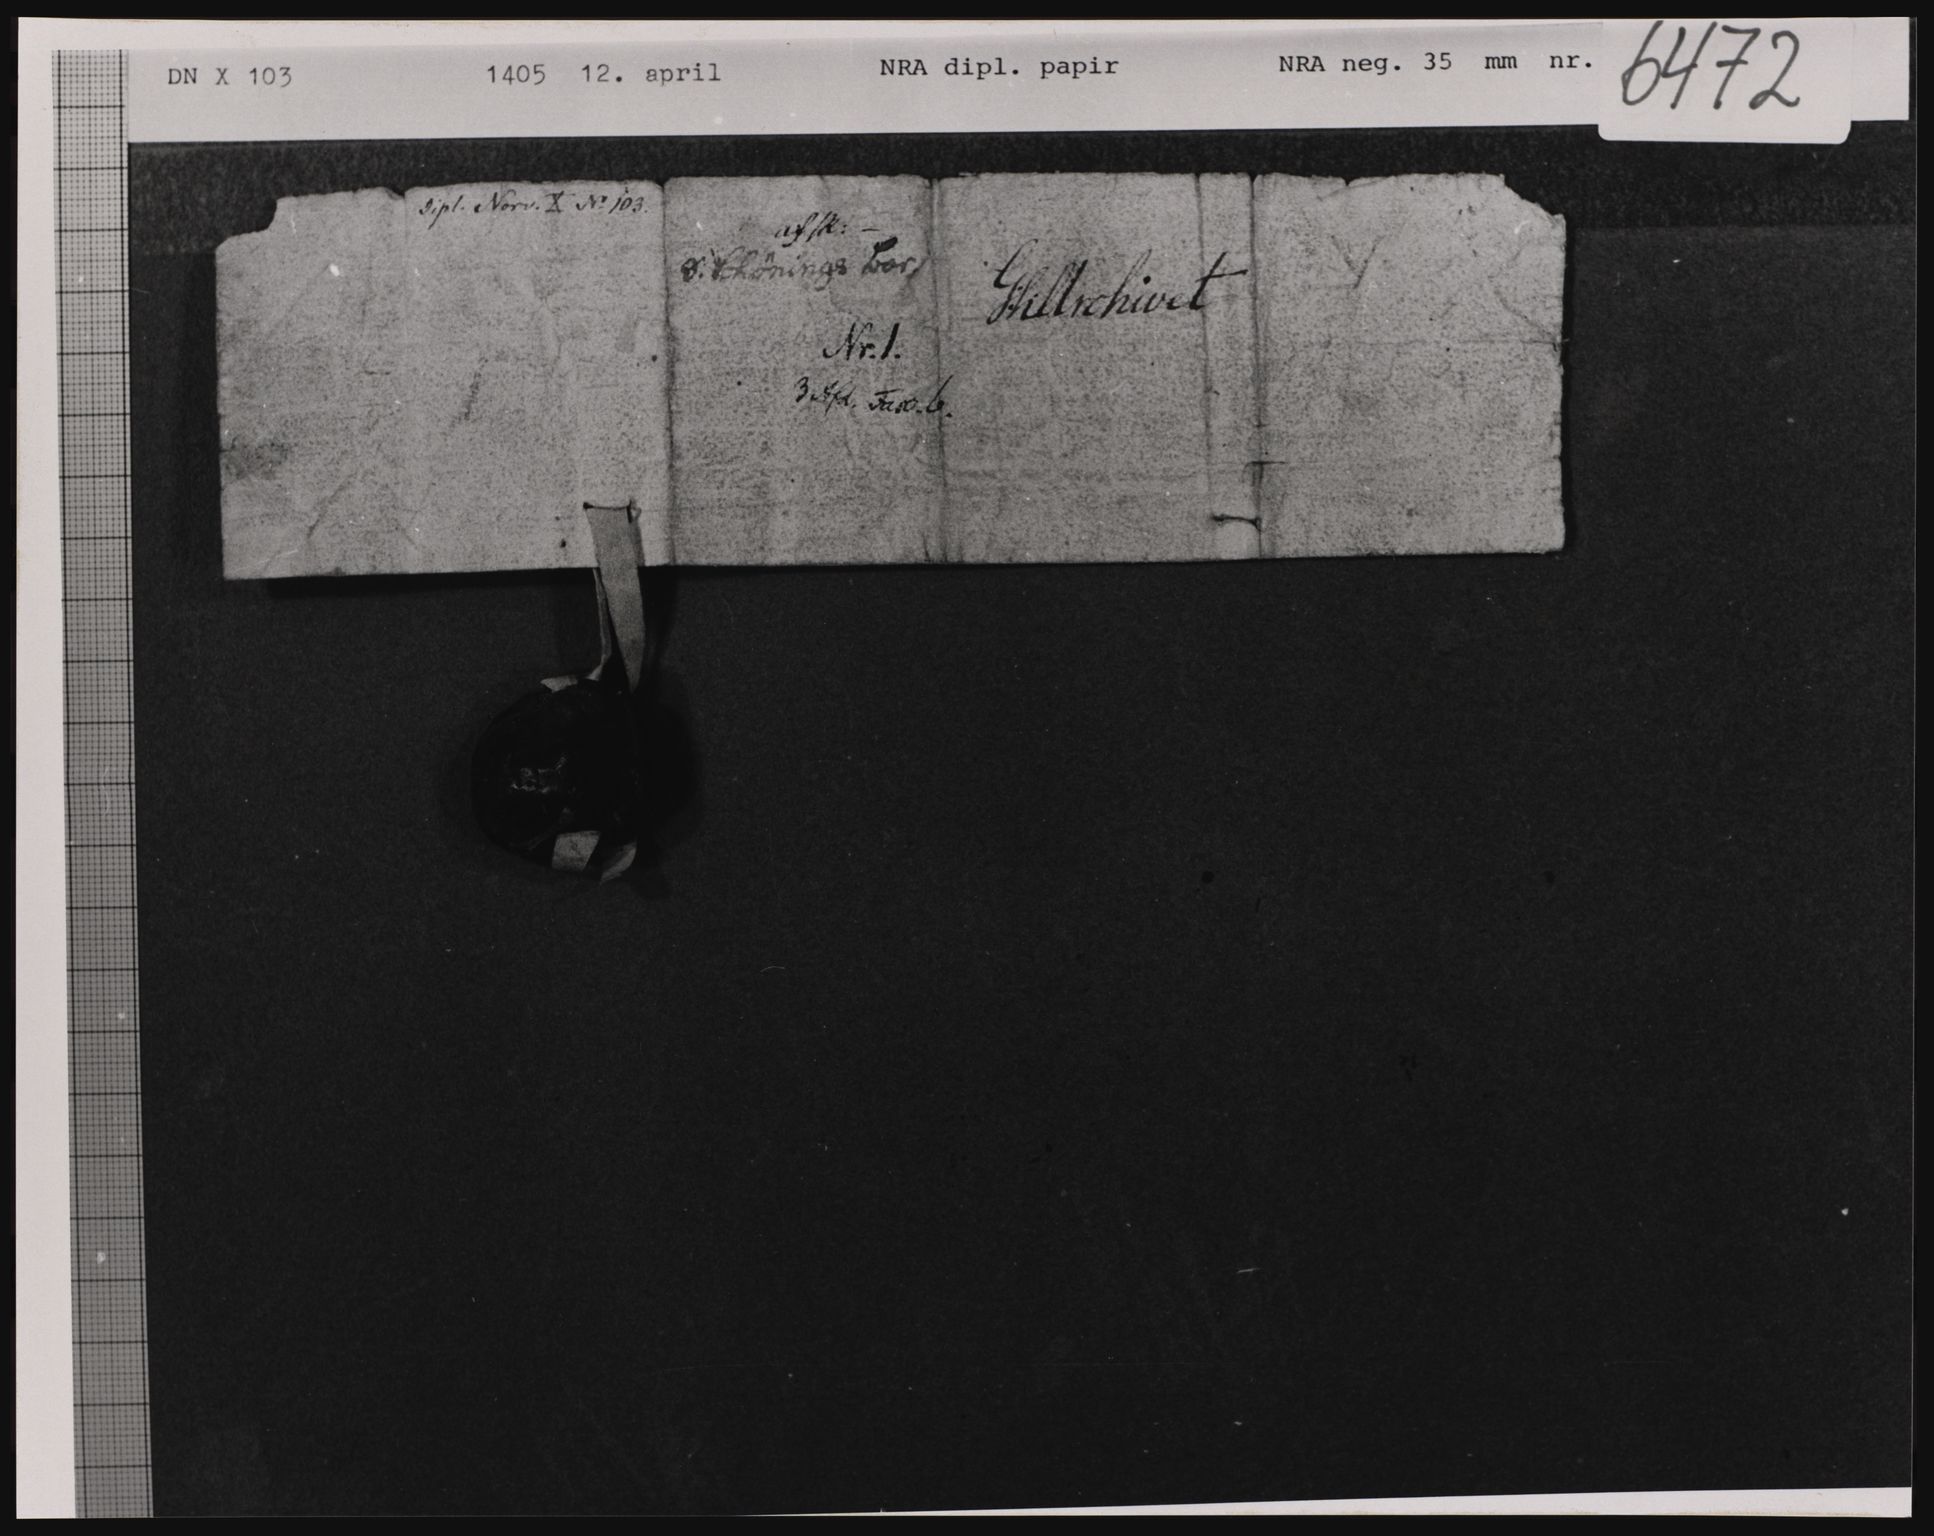 DN X 103 1405 12. april NRA dipl. papir NRA neg. 35 mm nr. 6472
Dipl. Norv. X No 103.
afsk: -
v. Schönings
Nr. 1.
3 Afd. Fasc. 6.